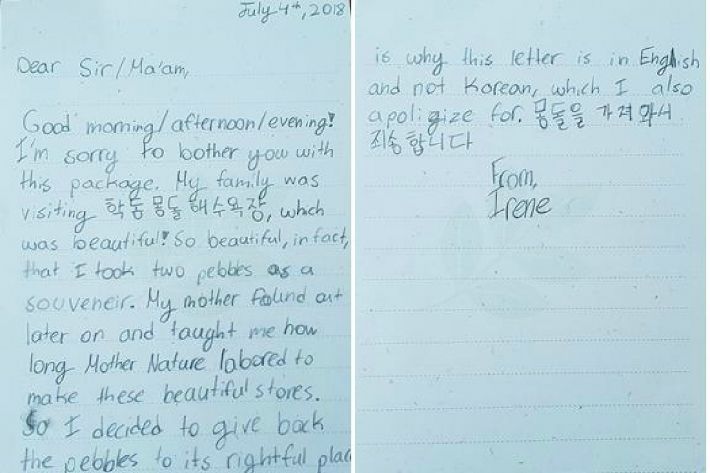 July 4th, 2018
Dear Sir/Ma'am,
Good morning/afternoon/evening!
I'm sorry to bother you with
this package. My family was
visiting 학동 몽돌 해수욕장, whch
was beautiful! So beautiful, in fact,
that I took two pebbles as a
souveneir. My mother found out
later on and taught me how
long Mother Nature labored to
make these beautiful stores.
So I decided to give back
the pebbles to its rightful plac
is why this letter is in English
and not Korean, which I also
apoligize for. 몽돌을 가져와서
죄송합니다
From,
Irene